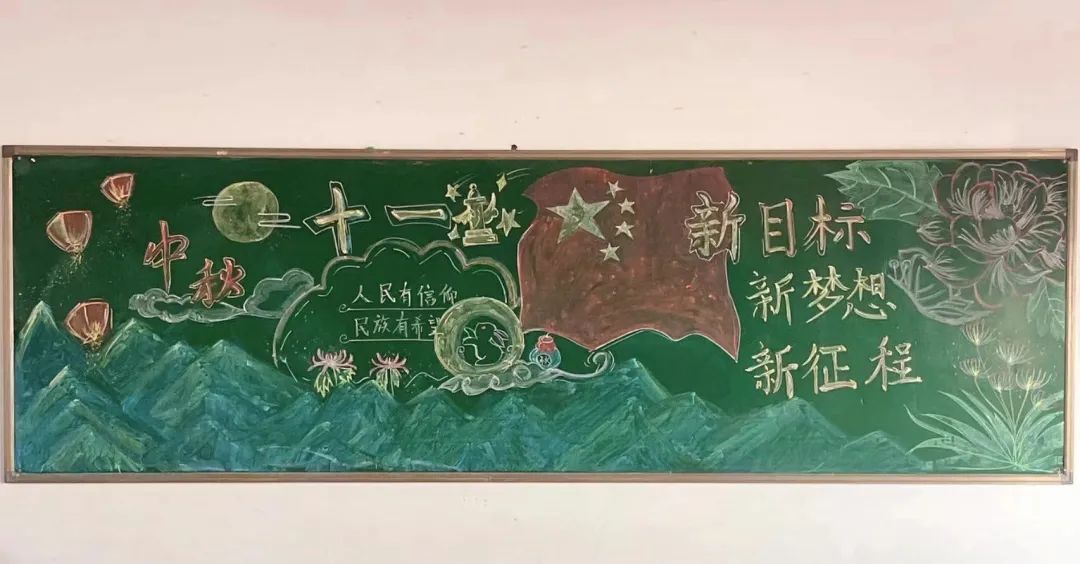 中秋
十一
人民有信仰
民族有希望
新目标
新梦想
新征程